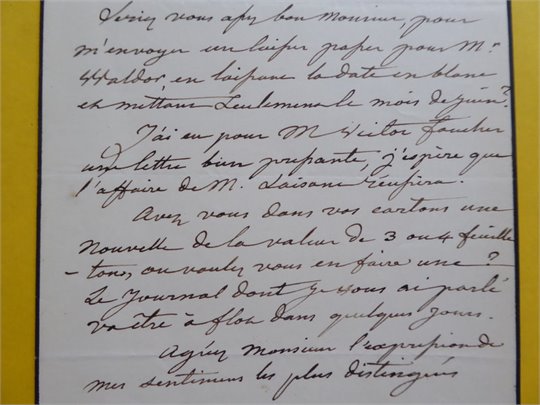 Seriez vous assez bon Monsieur, pour
m'envoyer un laisser passer pour Mr
Waldor, en laissant la date en blanc
et mettant seulement le mois de juin?
J'ai eu pour M Victor Foucher
une lettre bien pressante, j'espère que
l'affaire de M. Laisane réussira.
Avez vous dans vos cartons une
nouvelle de la valeur de 3 ou 4 feuille
-tons, ou voulez vous en faire une?
Le Journal dont je vous ai parlé
va être à flot dans quelques jours.
Agréez Monsieur l'expression de
mes sentimens les plus distingués